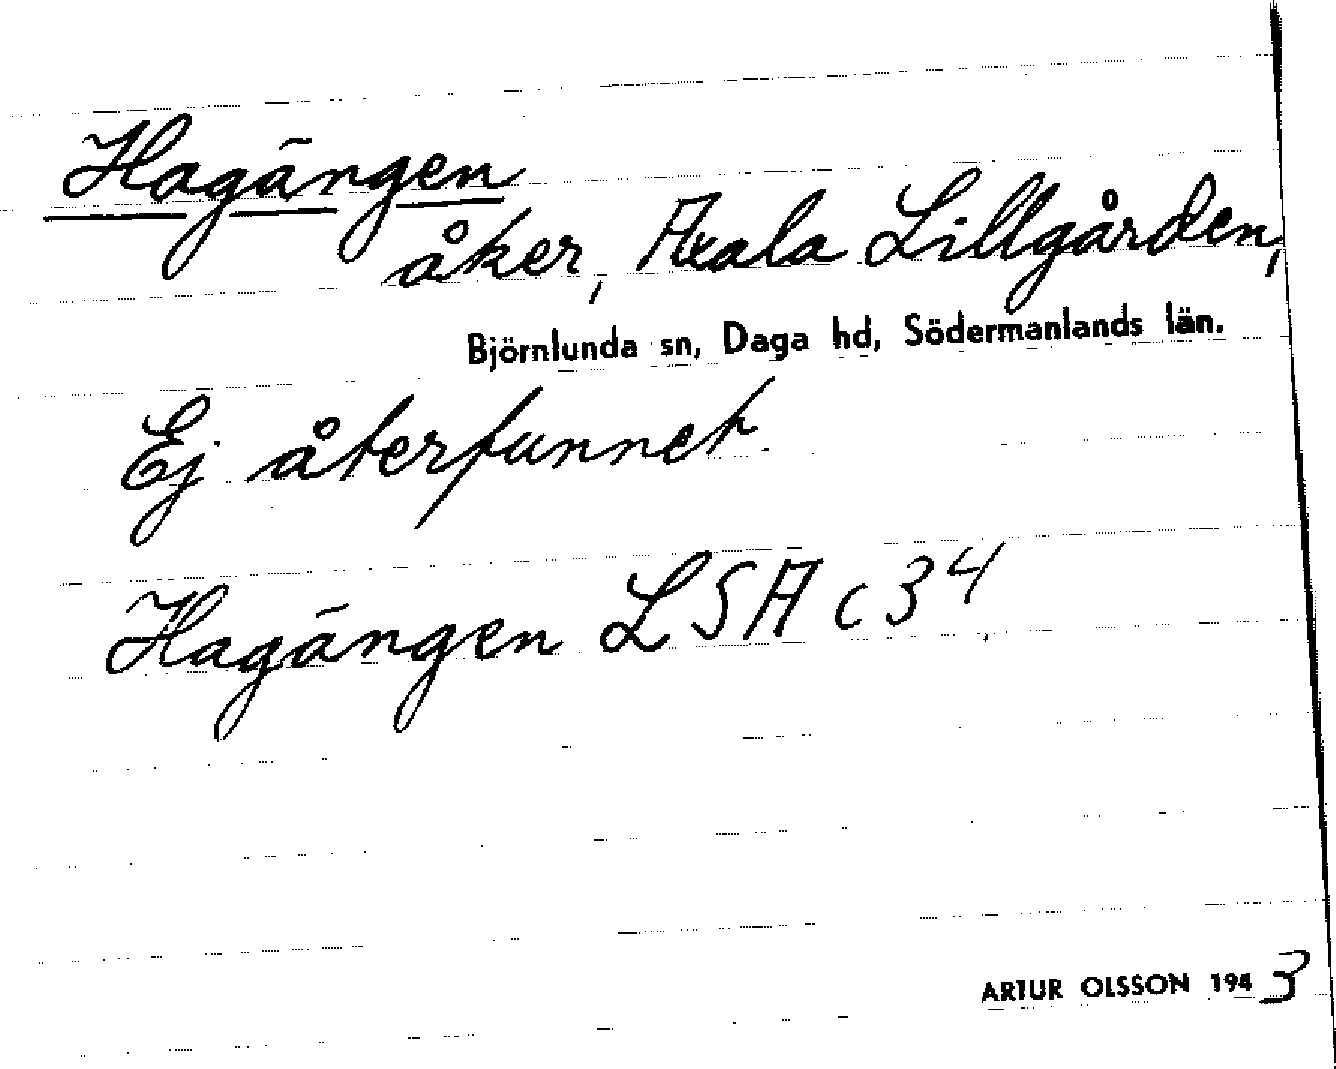 Hagängen
åker, Axala Lillgården,
Björnlunda sn, Daga hd, Södermanlands län.
Ej återfunnet
Hagängen LSA c 34
ARTUR OLSSON 1943